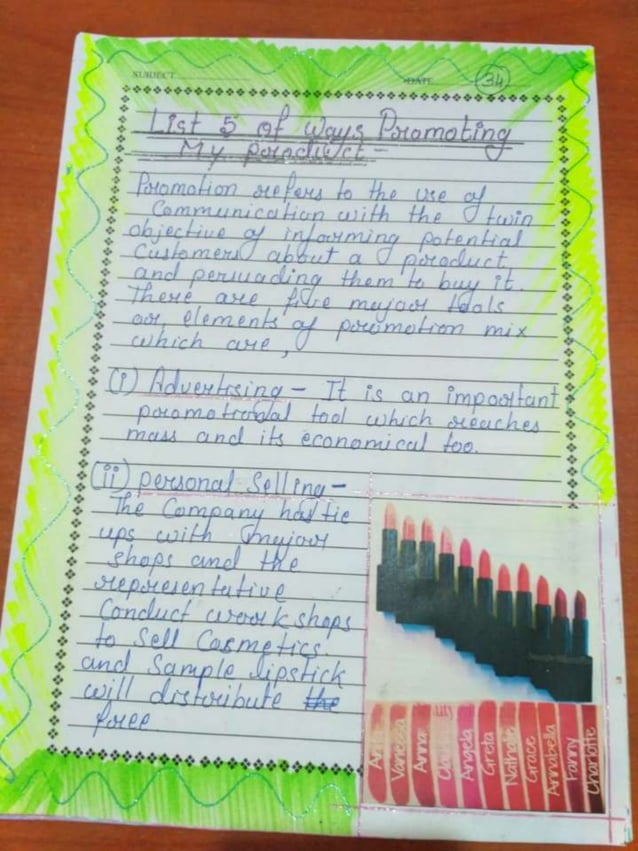 SUBJECT
DATE
34
List 5 of Ways Promoting
My product -
Promotion refers to the use of
Communication with the twin
objective of informing potential
Customers about a product
and persuading them to buy it.
There are five major tools
or elements of promotion mix
which are,
(i) Advertising - It is an important
promotional tool which reaches
mass and its economical too.
(ii) personal Selling -
The Company has tie
ups with major
shops and the
representative
Conduct workshops
to Sell Cosmetics.
and Sample lipstick
will distribute the
free
Vanessa
Anna
Angela
Greta
Nathalie
Grace
Annabella
Fanny
Charlotte